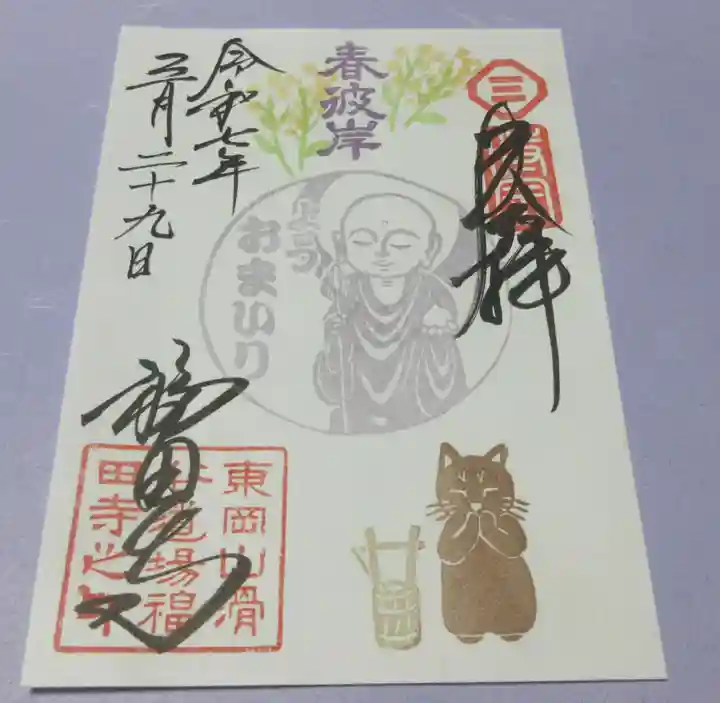 三
奉拝
春彼岸
おまいり
令和七年
三月二十九日
福田寺
東岡山滑
谷道場福
田寺之印